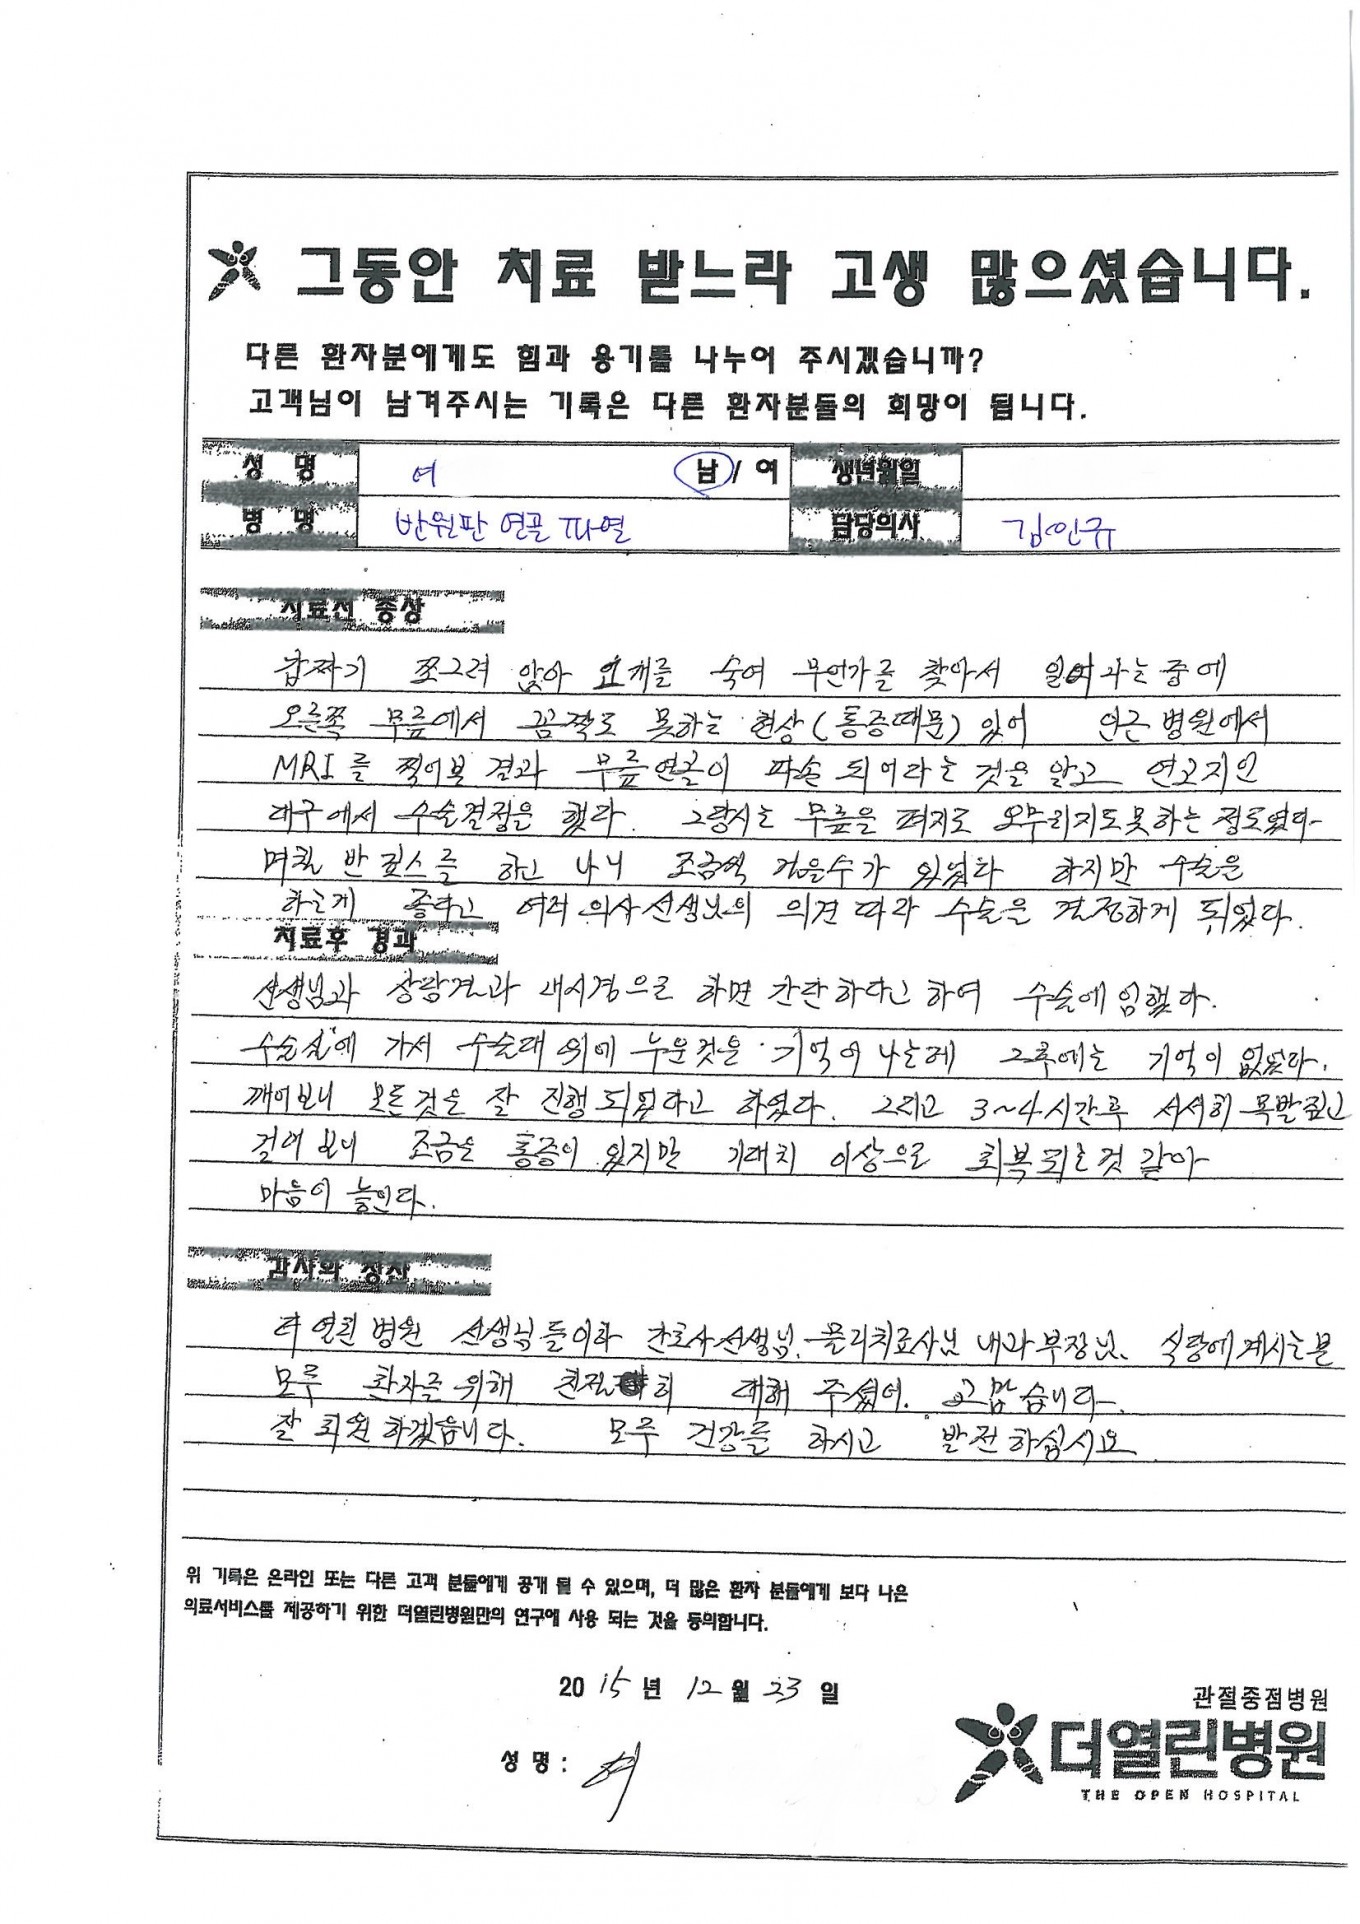 그동안 치료 받느라 고생 많으셨습니다.
다른 환자분에게도 힘과 용기를 나누어 주시겠습니까?
고객님이 남겨주시는 기록은 다른 환자분들의 희망이 됩니다.
성 명 여 남 / 여 생년월일
병 명 반월판 연골 파열 담당의사 김인규
치료전 증상
갑짜기 쪼그려 앉아 고개를 숙여 무언가를 찾아서 일어나는 중에
오른쪽 무릎에서 꼼짝도 못하는 현상(통증때문) 있어 인근 병원에서
MRI를 찍어본 결과 무릎연골이 파손 되어라는 것을 알고 연고지인
대구에서 수술결정을 했다. 그당시는 무릎을 펴지도 오무리지도못하는 정도였다.
며칠 반 깁스를 하고 나니 조금씩 걸을수가 있었다 하지만 수술을
하는게 좋다고 여러 의사선생님의 의견 따라 수술을 결정하게 되었다.
치료후 경과
선생님과 상담결과 내시경으로 하면 간단하다고 하여 수술에 임했다.
수술실에 가서 수술대 위에 누운것은 기억이 나는데 그후에는 기억이 없었다.
깨어보니 모든것은 잘 진행되었다고 하였다. 그리고 3~4시간후 서서히 목발짚고
걸어 보니 조금은 통증이 있지만 기대치 이상으로 회복되는것 같아
마음이 놓인다.
감사의 한
더 열린병원 선생님들이라 간호사선생님, 물리치료사님 내과부장님, 식당에계시는분
모두 환자를 위해 친절히 대해 주셨어. 고맙습니다.
잘 퇴원하겠읍니다. 모두 건강들 하시고 발전하십시요
위 기록은 온라인 또는 다른 고객 분들에게 공개 될 수 있으며, 더 많은 환자 분들에게 보다 나은
의료서비스를 제공하기 위한 더열린병원만의 연구에 사용 되는 것을 동의합니다.
2015년 12월 23일
성 명 : 여
관절중점병원
더열린병원
THE OPEN HOSPITAL